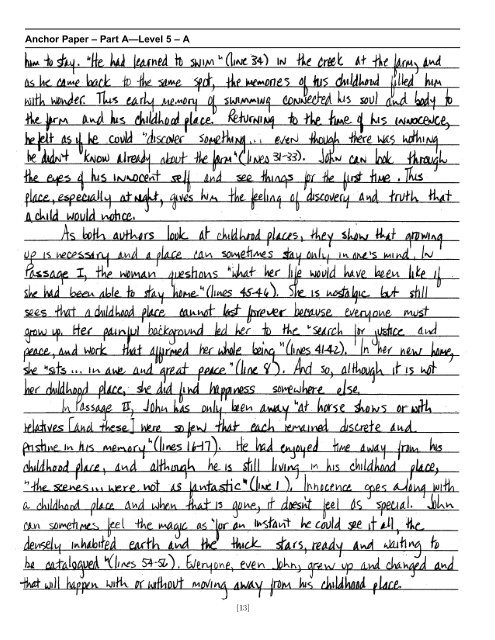 Anchor Paper – Part A—Level 5 – A
him to stay. "He had learned to swim" (line 34) in the creek at the farm, and
as he came back to the same spot, the memories of his childhood filled him
with wonder. This early memory of swimming connected his soul and body to
the farm and his childhood place. Returning to the time of his innocence,
he felt as if he could "discover something... even though there was nothing
he didn't know already about the farm" (lines 31-33). John can look through
the eyes of his innocent self and see things for the first time. This
place, especially at night, gives him the feeling of discovery and truth that
a child would notice.
As both authors look at childhood places, they show that growing
up is necessary and a place can sometimes stay only in one's mind. In
Passage I, the woman questions "what her life would have been like if
she had been able to stay home" (lines 45-46). She is nostalgic but still
sees that a childhood place cannot last forever because everyone must
grow up. Her painful background led her to the "search for justice and
peace, and work that affirmed her whole being" (lines 41-42). In her new home,
she "sits... in awe and great peace" (line 8). And so, although it is not
her childhood place, she did find happiness somewhere else.
In Passage II, John has only been away "at horse shows or with
relatives [and these] were so few that each remained discrete and
pristine in his memory" (lines 16-17). He had enjoyed time away from his
childhood place, and although he is still living in his childhood place,
"the scenes... were not as fantastic" (line 1). Innocence goes along with
a childhood place and when that is gone, it doesn't feel as special. John
can sometimes feel the magic as "for an instant he could see it all, the
densely inhabited earth and the thick stars, ready and waiting to
be catalogued" (lines 54-56). Everyone, even John, grew up and changed and
that will happen with or without moving away from his childhood place.
[13]